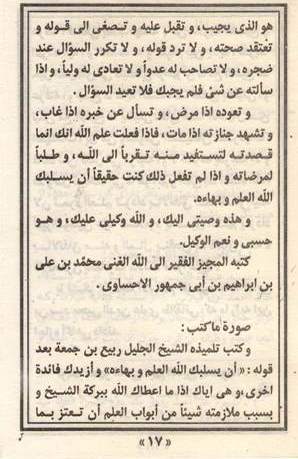 هو الذى يجيب، و تقبل عليه و تصغى الى قوله و
تعتقد صحته، و لا ترد قوله، و لا تكرر السؤال عند
ضجره، و لا تصاحب له عدواً و لا تعادى له ولياً، و اذا
سألته عن شئ فلم يجبك فلا تعيد السؤال .
و تعوده اذا مرض، و تسأل عن خبره اذا غاب،
و تشهد جنازته اذا مات، فاذا فعلت علم الله إنك انما
قصدتـه لتستفيد منـه تقرباً الى اللـه، و طلبـاً
لمرضاته و اذا لم تفعل ذلك كنت حقيقاً أن يسلبك
الله العلم و بهاءه.
و هذه وصيتى اليك، و الله وكيلى عليك، و هـو
حسبى و نعم الوكيل.
كتبه المجيز الفقير الى الله الغنى محمّد بن على
بن ابراهيم بن أبى جمهور الاحساوى .
صورة ما كتب :
و كتب تلميذه الشيخ الجليل ربيع بن جمعة بعد
قوله: « أن يسلبك الله العلم و بهاءه» و أزيدك فائدة
اخرى، و هى اياك اذا ما اعطاك الله ببركة الشيخ و
بسبب ملازمته شيئاً من أبواب العلم أن تعتز بما
«۱۷»